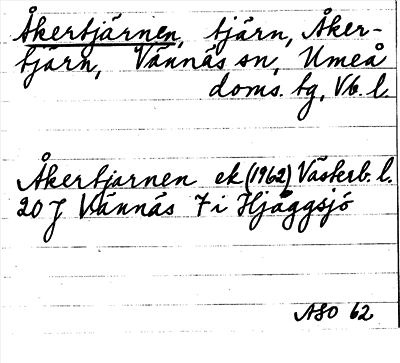 Åkertjärnen, tjärn, Åker-
tjärn, Vännäs sn, Umeå
doms. tg, Vb. l.
Åkertjarnen ek (1962) Västerb. l.
20 J Vännäs 7 i Hjåggsjö
ASO 62